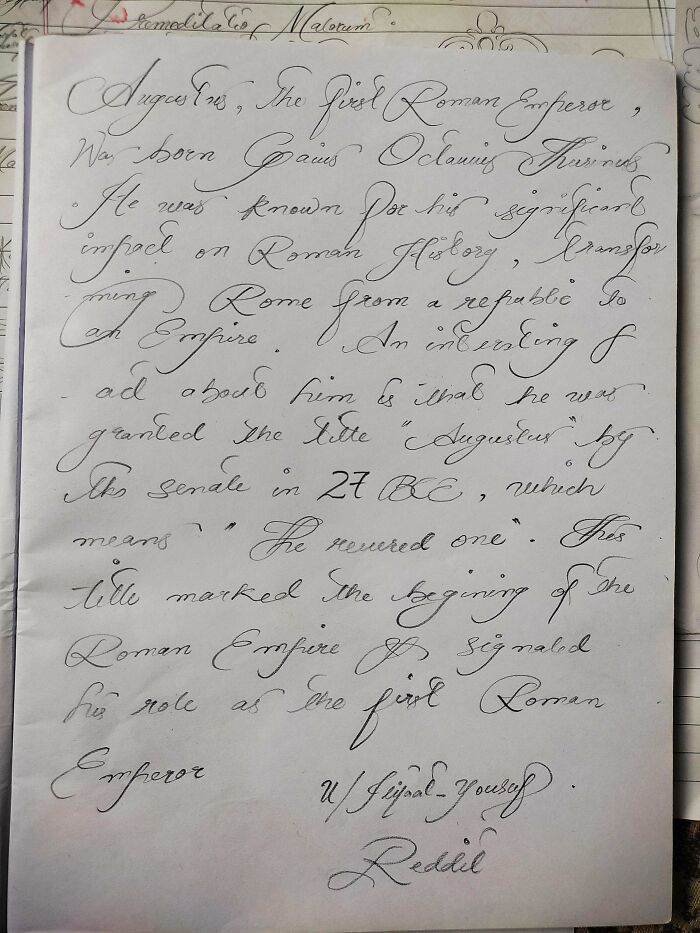 Premeditatio Malorum.
Augustus, the first Roman Emperor,
Was born Gaius Octavius Thurinus
. He was known for his significant
impact on Roman History, transfor
ming Rome from a republic to
an Empire. An intersting f
act about him is that he was
granted the title "Augustus" by
the senate in 27 BCE, which
means "The revered one". This
title marked the begining of the
Roman Empire & signaled
his role as the first Roman
Emperor
u/ -Yousuf.
Reddit